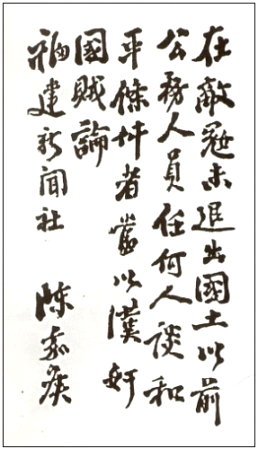 在敵寇未退出國土以前
公務人員任何人談和
平條件者當以漢奸
國賊論
福建新聞社　陳嘉庚